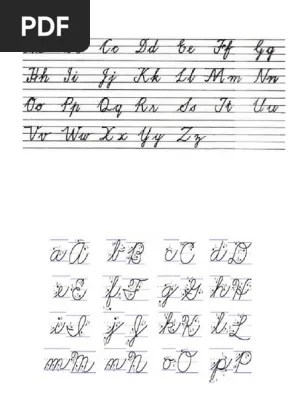 PDF
Cc Dd Ee Ff Gg
Hh Ii Jj Kk Ll Mm Nn
Oo Pp Qq Rr Ss Tt Uu
Vv Ww Xx Yy Zz
aA bB cC dD
eE fF gG hH
iI jJ kK lL
mM nN oO pP